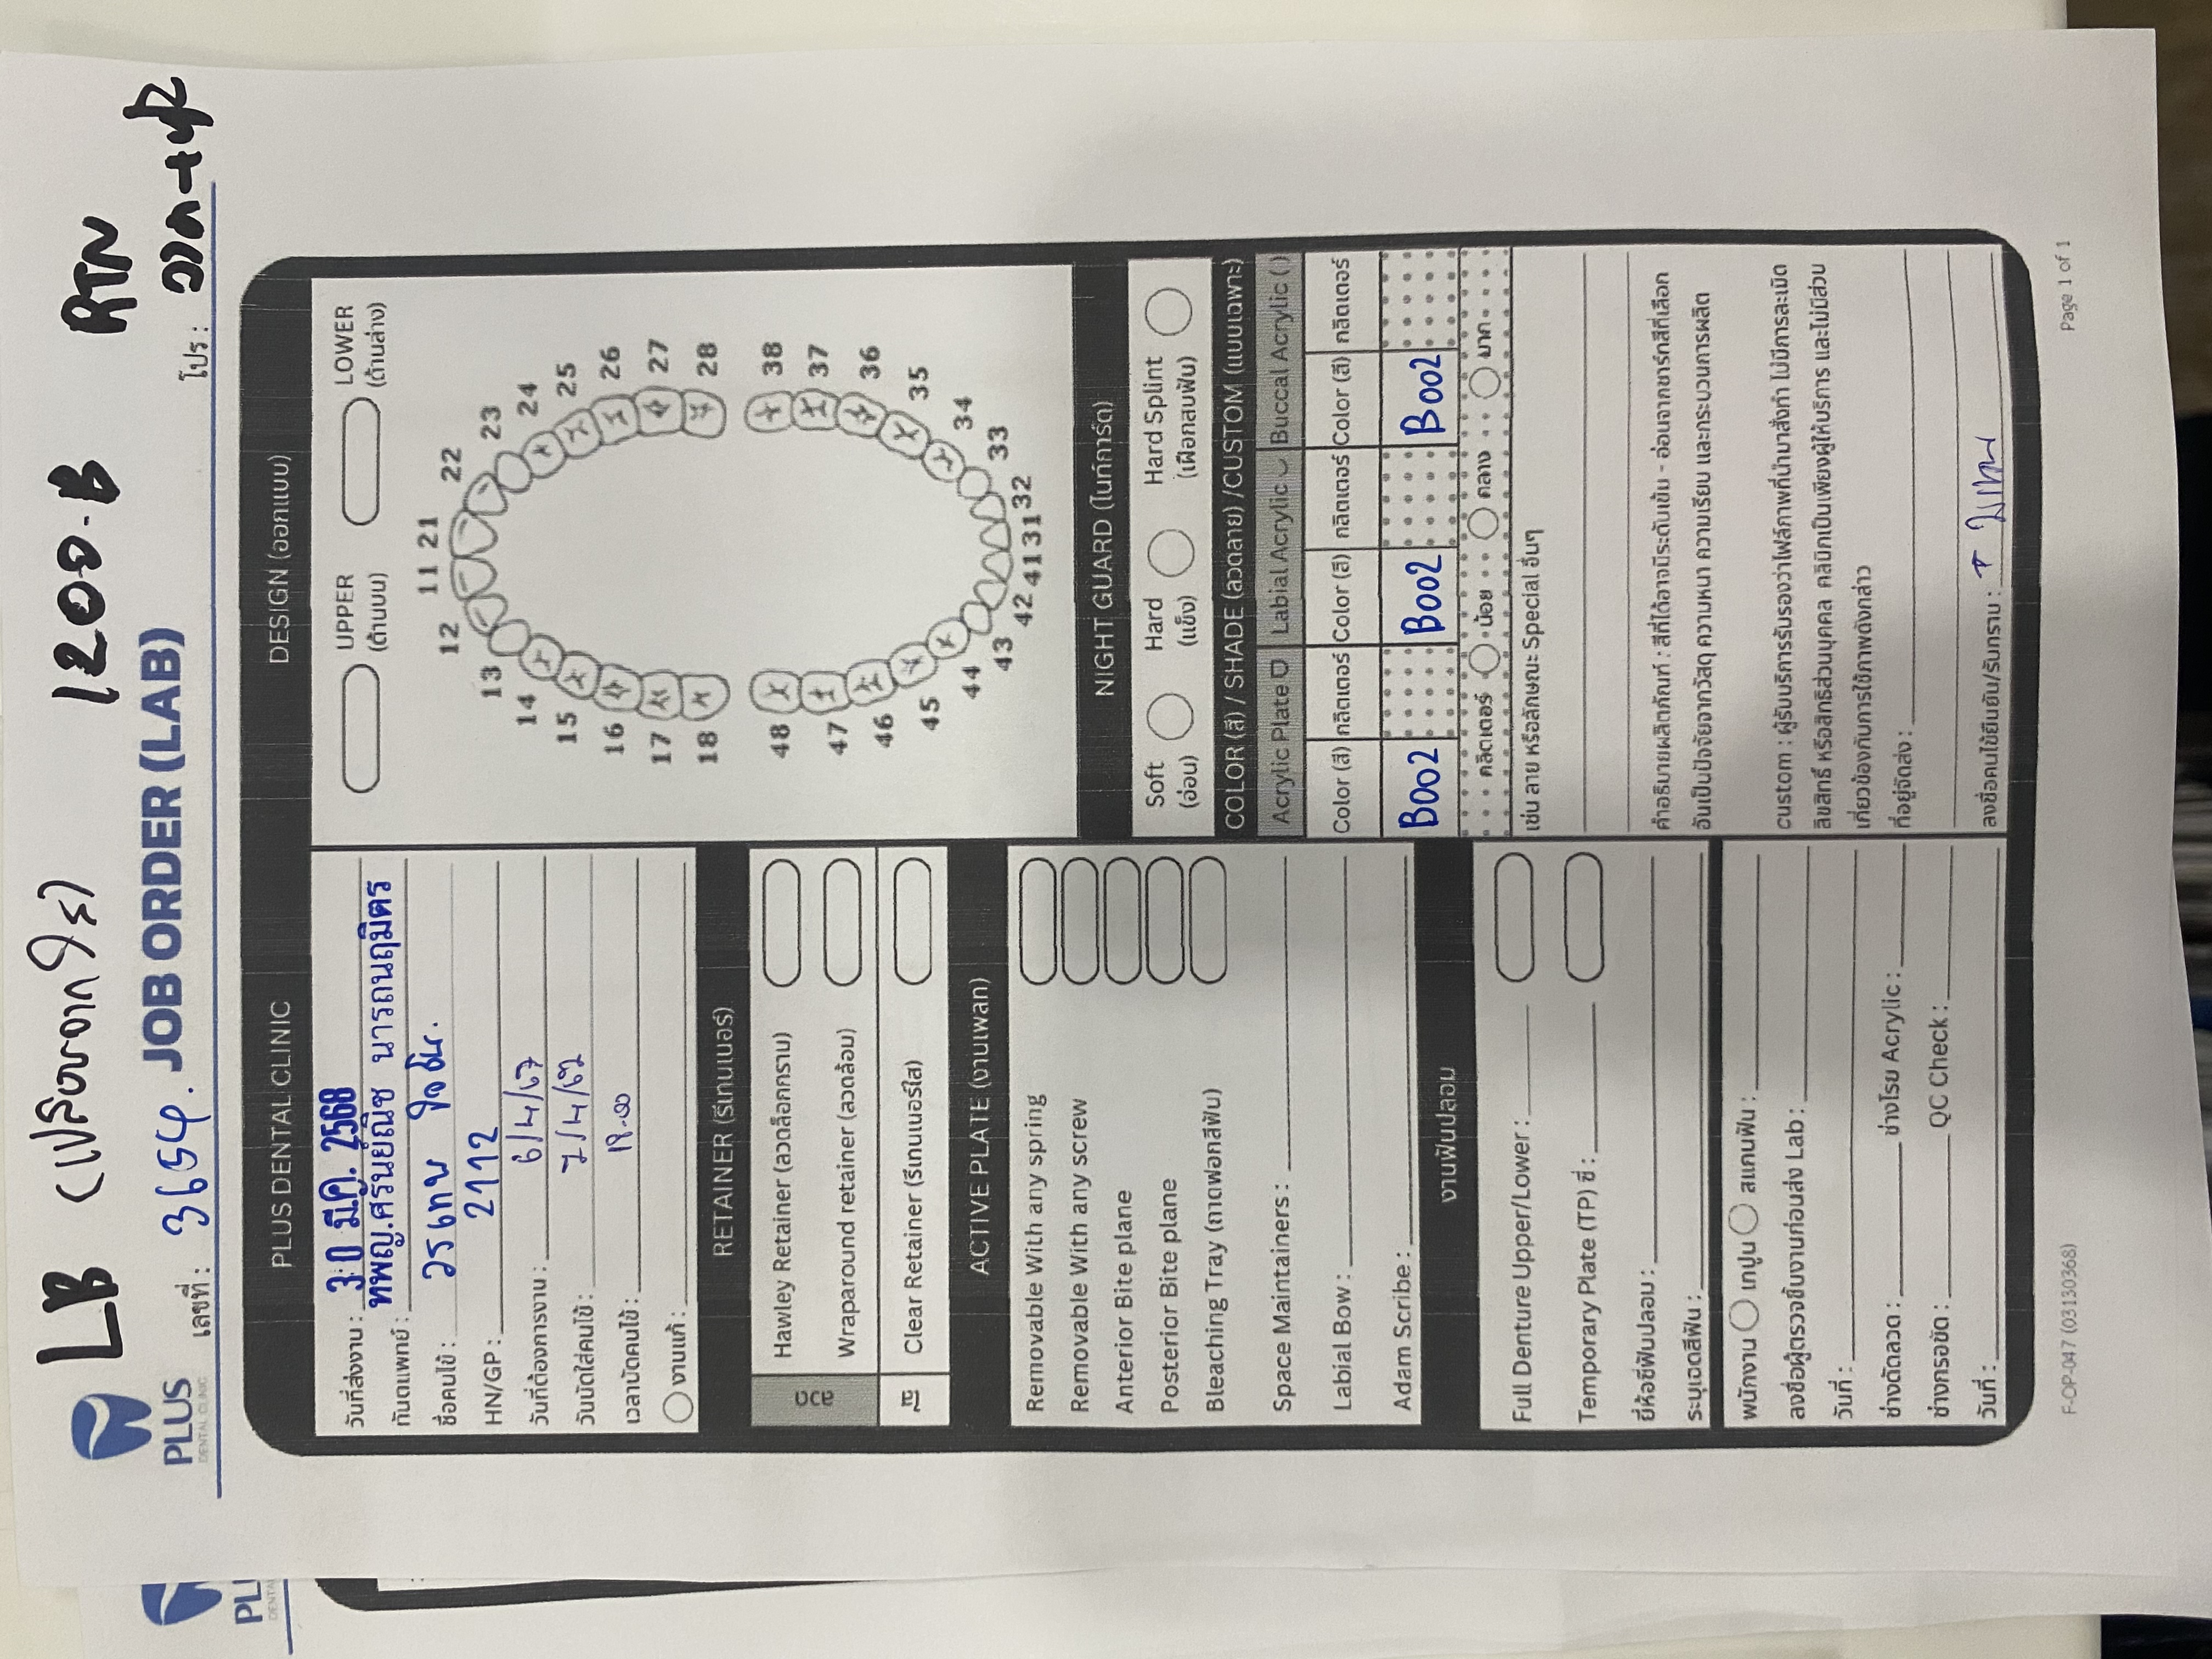 LB (เปลี่ยนจากใส) 1200.-B RTN
PLUS
DENTAL CLINIC
เลขที่ : 3654. JOB ORDER (LAB) โปร : ลวด+
PLUS DENTAL CLINIC
วันที่ส่งงาน : 30 มี.ค. 2568
ทันตแพทย์ : ทพญ.ศรันย์ณิช นารถนฤมิตร
ชื่อคนไข้ : วรเทพ
HN/GP : 2112
วันที่ต้องการงาน : 6/4/67
วันนัดใส่คนไข้ : 7/4/67
เวลานัดคนไข้ : 18.00
งานแก้ :
RETAINER (รีเทนเนอร์)
ลวด
Hawley Retainer (ลวดล็อกกราม)
Wraparound retainer (ลวดล้อม)
ใส
Clear Retainer (รีเทนเนอร์ใส)
ACTIVE PLATE (งานเพลท)
Removable With any spring
Removable With any screw
Anterior Bite plane
Posterior Bite plane
Bleaching Tray (ถาดฟอกสีฟัน)
Space Maintainers :
Labial Bow :
Adam Scribe :
งานฟันปลอม
Full Denture Upper/Lower :
Temporary Plate (TP) ซี่ :
ยี่ห้อซี่ฟันปลอม :
ระบุเฉดสีฟัน :
พนักงาน เทปูน สแกนฟัน :
ลงชื่อผู้ตรวจชิ้นงานก่อนส่ง Lab :
วันที่ :
ช่างดัดลวด : ช่างโรย Acrylic :
ช่างกรอขัด : QC Check :
วันที่ :
DESIGN (ออกแบบ)
UPPER LOWER
(ด้านบน) (ด้านล่าง)
11 21
12 22
13 23
14 24
15 25
16 26
17 27
18 28
48 38
47 37
46 36
45 35
44 34
43 33
42 41 31 32
NIGHT GUARD (ไนท์การ์ด)
Soft Hard Hard Splint
(อ่อน) (แข็ง) (เฝือกสบฟัน)
COLOR (สี) / SHADE (ลวดลาย) /CUSTOM (แบบเฉพาะ)
Acrylic Plate Labial Acrylic Buccal Acrylic ( )
Color (สี) กลิตเตอร์ Color (สี) กลิตเตอร์ Color (สี) กลิตเตอร์
B002 B002 B002
กลิตเตอร์ น้อย กลาง มาก
เช่น ลาย หรือลักษณะ Special อื่นๆ
คำอธิบายผลิตภัณฑ์ : สีที่ได้อาจมีระดับเข้ม - อ่อนจากชาร์ทสีที่เลือก
อันเป็นปัจจัยจากวัสดุ ความหนา ความเรียบ และกระบวนการผลิต
custom : ผู้รับบริการรับรองว่าไฟล์ภาพที่นำมาสั่งทำ ไม่มีการละเมิด
ลิขสิทธิ์ หรือสิทธิส่วนบุคคล คลินิกเป็นเพียงผู้ให้บริการ และไม่มีส่วน
เกี่ยวข้องกับการใช้ภาพดังกล่าว
ที่อยู่จัดส่ง :
ลงชื่อคนไข้ยืนยัน/รับทราบ :
F-OP-047 (03130368)
Page 1 of 1